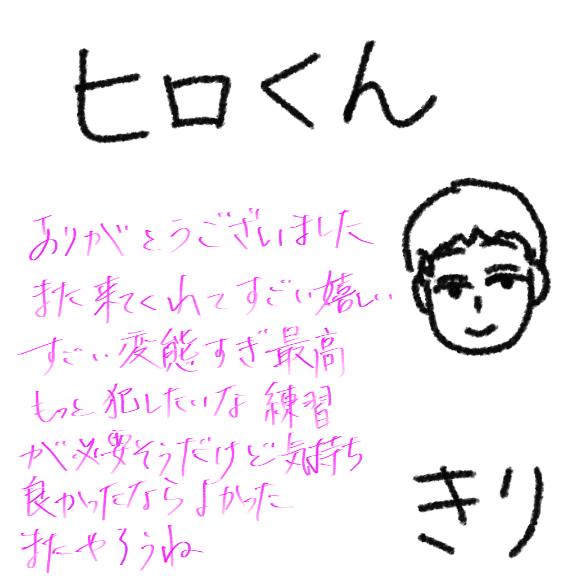 ヒロくん
ありがとうございました
また来てくれてすごい嬉しい
すごい変態すぎ最高
もっと犯したいな 練習
が必要そうだけど気持ち
良かったならよかった
またやろうね
きり